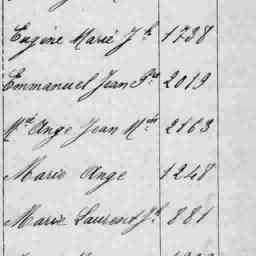 Eugène Marie Jh 1738
Emmanuel Jean Pre 2019
Mie Ange Jean Mie 2163
Marie Ange 1248
Marie Laurent Jh 881